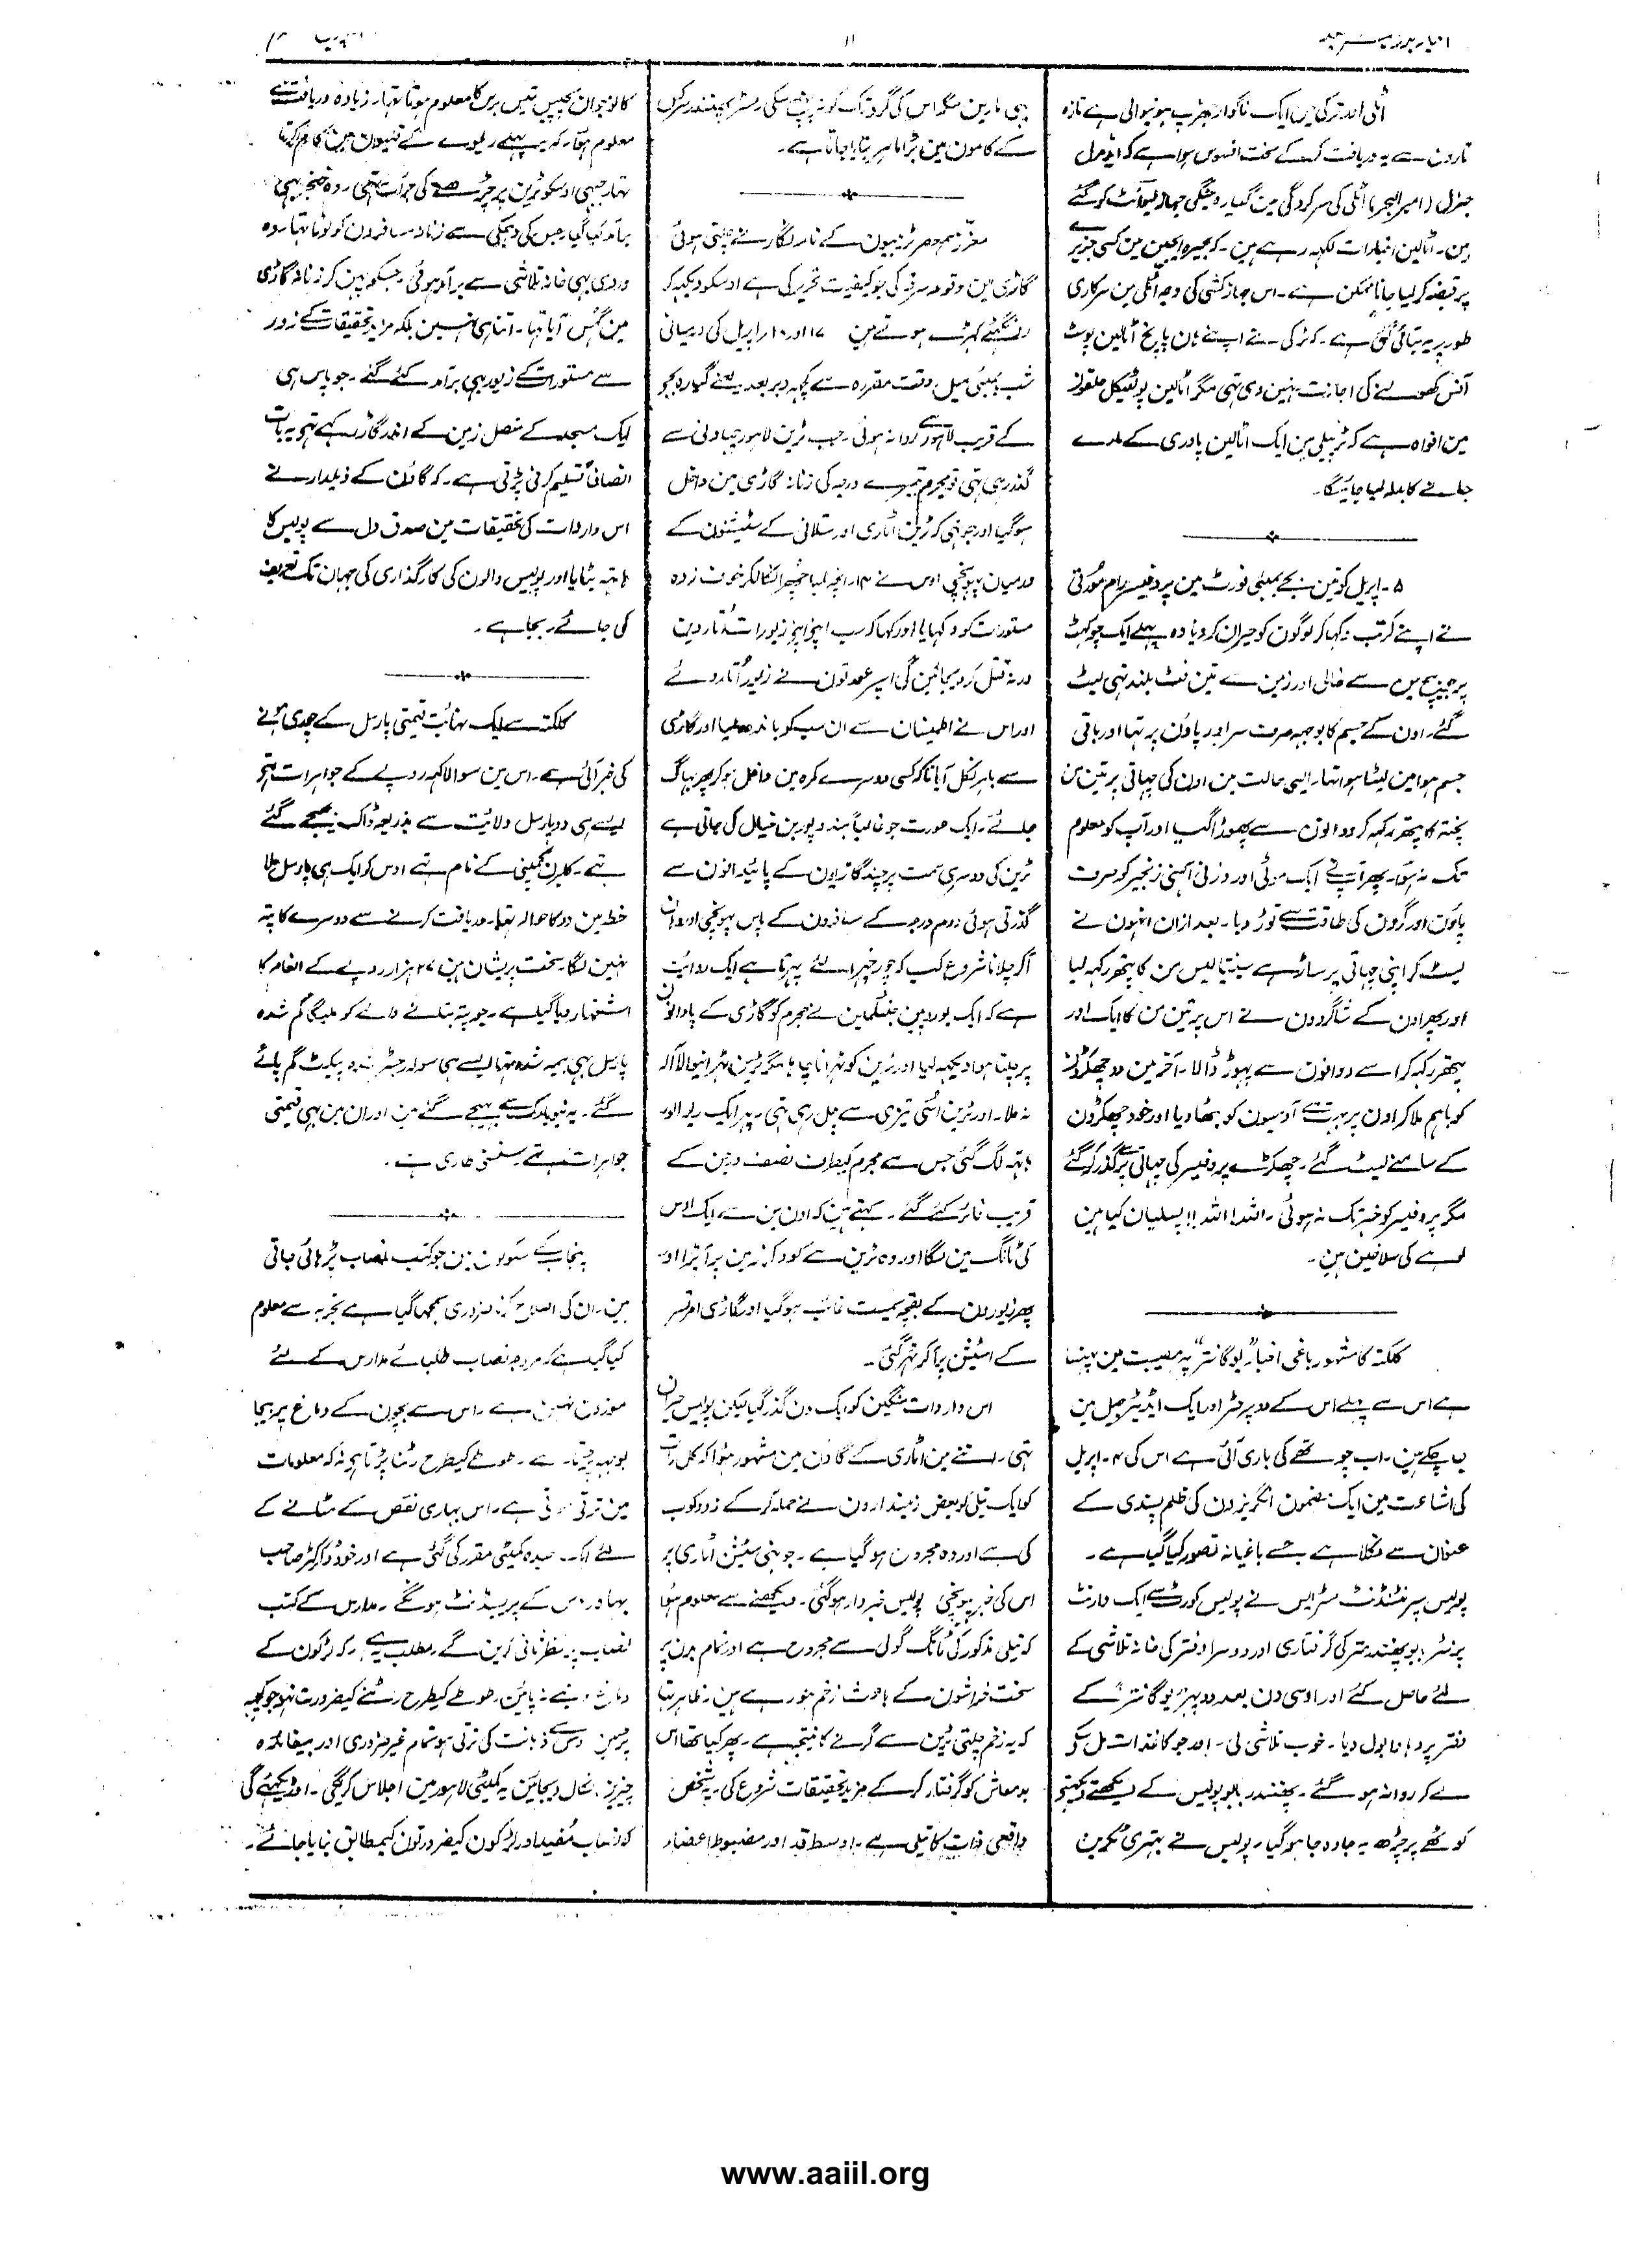 ۱۱
اٹلی اور ٹرکی میں ایک ناگوار جھڑپ ہونیوالی ہے تازہ
تارون سے یہ دریافت کرکے سخت افسوس ہوا ہے کہ ایڈمرل
جنرل (امیر البحر) اٹلی کی سرکردگی مین گیارہ جنگی جہاز لیوانٹ کو گئے
ہین۔ اٹالین اخبارات لکہہ رہے ہین۔ کہ بحیرہ ایجین مین کسی جزیرے
پر قبضہ کر لیا جانا ممکن ہے۔ اس جہاز کشی کی وجہ اٹلی مین سرکاری
طور پر یہ بتائی گئی ہے۔ کہ ٹرکی نے اپنے ہان پانچ اٹالین پوسٹ
آفس کھولنے کی اجازت نہین دی تہی مگر اٹالین پولٹیکل حلقون
مین افواہ ہے کہ ٹریپلی مین ایک اٹالین پادری کے مارے
جانے کا بدلہ لیا جائیگا۔
۵۔ اپریل کو تین بجے بمبئی فورٹ مین پروفیسر رام مورتی
نے اپنے کرتب دکہا کر لوگون کو حیران کر دیا وہ پہلے ایک چوکہٹ
پر جو بیچ مین سے خالی اور زمین سے تین فٹ بلند تہی لیٹ
گئے۔ اون کے جسم کا بوجہہ صرف سر اور پاؤن پر تہا اور باقی
جسم ہوا مین لیٹا ہوا تہا۔ ایسی حالت مین اون کی چہاتی پر تین من
پختہ کا پتھر رکہہ کر دوالون سے پھوڑا گیا اور آپ کو معلوم
تک نہ ہوا۔ پھر آپ نے ایک موٹی اور وزنی آہنی زنجیر کو صرف
پاؤن اور گردن کی طاقت سے توڑ دیا۔ بعد ازان انہون نے
لیٹ کر اپنی چہاتی پر ساڑہے سینتالیس من کا پتھر رکہہ لیا
اور پھر اون کے شاگردون نے اس پر تین من کا ایک اور
پتھر رکہہ کر اسے دوانون سے پہوڑ ڈالا۔ آخر مین دو چھکڑون
کو باہم ملا کر اون پر بہت سے آدمیون کو بٹھا دیا اور خود چھکڑون
کے سامنے لیٹ گئے۔ چھکڑے پروفیسر کی چہاتی پر سے گذر گئے
مگر پروفیسر کو خبر تک نہ ہوئی۔ اللہ اللہ!! پسلیان کیا ہین
لوہے کی سلاخین ہین۔
کلکتہ کا مشہور باغی اخبار "یوگانتر" پہر مصیبت مین پہنسا
ہے اس سے پہلے اس کے دو پرنٹر اور ایک ایڈیٹر جیل مین
جا چکے ہین۔ اب چوتھے کی باری آئی ہے اس کی ۴۔ اپریل
کی اشاعت مین ایک مضمون انگریزون کی ظلم پسندی کے
عنوان سے نکلا ہے جسے باغیانہ تصور کیا گیا ہے۔
پولیس سپرنٹنڈنٹ مسٹر ایس نے پولیس کورٹ سے ایک وارنٹ
پرنٹر بابو پھنندر متر کی گرفتاری اور دوسرا دفتر کی خانہ تلاشی کے
لئے حاصل کئے اور اوسی دن بعد دوپہر یوگانتر کے
دفتر پر دہاوا بول دیا۔ خوب تلاشی لی۔ اور جو کاغذات مل سکے
لے کر روانہ ہو گئے۔ پھنندر بابو پولیس کے دیکھتے دیکھتے
کوٹھے پر چڑھ یہ جا وہ جا ہو گیا۔ پولیس نے بہتری ٹکرین
بہی مارین مگر اس کی گرد تک کو نہ پہنچ سکی مسٹر پھنندر کرکٹ
کے کامون مین بڑا ماہر بتایا جاتا ہے۔
معزز ہمعصر ٹریبیون کے نامہ نگار نے چلتی ہوئی
گاڑی مین وقوعہ سرقہ کی جو کیفیت تحریر کی ہے اوسکو دیکہہ کر
رونگٹے کہڑے ہوتے ہین ۱۷ اور ۱۸ اپریل کی درمیانی
شب بمبئی میل وقت مقررہ سے کچہہ دیر بعد یعنے گیارہ بجے
کے قریب لاہور سے روانہ ہوئی۔ جب ٹرین لاہور چہاونی سے
گذر رہی تہی تو مجرم تیسرے درجہ کی زنانہ گاڑی مین داخل
ہو گیا اور جونہی کہ ٹرین اٹاری اور ستلانی کے سٹیشنون کے
درمیان پہونچی اوس نے ۱۴۔ انچہ لمبا خنجر نکالکر خوف زدہ
مستورات کو دکہایا اور کہا کہ سب اپنے اپنے زیورات اتار دین
ورنہ قتل کر دیجائین گی اسپر عورتون نے زیور اتار دئے
اور اس نے اطمینان سے ان سب کو باندھ لیا اور گاڑی
سے باہر نکل آیا تاکہ کسی دوسرے کمرہ مین داخل ہو کر پھر بہاگ
جائے۔ ایک عورت جو غالباً ہندو پوربن خیال کی جاتی ہے
ٹرین کی دوسری سمت پر چند گاڑیون کے پائیدانون سے
گذرتی ہوئی دوم درجہ کے مسافرون کے پاس پہونچی اور وہان
آکر چلانا شروع کیا کہ چور خنجر لئے پہرتا ہے ایک روائیت
ہے کہ ایک یوروپین جنٹلمین نے مجرم کو گاڑی کے پائدانون
پر چلتا ہوا دیکہہ لیا اور ٹرین کو ٹہرانا چاہا مگر ٹرین ٹہرانیوالا آلہ
نہ ملا۔ اور ٹرین اسی تیزی سے چل رہی تہی۔ پہر ایک ریوالور
ہاتہہ لگ گئی جس سے مجرم کیطرف نصف درجن کے
قریب فائر کئے گئے۔ کہتے ہین کہ اون مین سے ایک اوس
کی ٹانگ مین لگا اور وہ ٹرین سے کود کر زمین پر آ پڑا اور
پھر زیورون کے بقچہ سمیت غائب ہو گیا اور گاڑی امرتسر
کے اسٹیشن پر آ کر ٹہر گئی۔
اس واردات سنگین کو ایک دن گذر گیا لیکن پولیس حیران
تہی۔ اتنے مین اٹاری کے گاؤن مین مشہور ہوا کہ کل رات
کو ایک تیلی کو بعض زمیندارون نے حملہ کر کے زدوکوب
کی ہے اور وہ مجروح ہو گیا ہے۔ جونہی سٹیشن اٹاری پر
اس کی خبر پہونچی پولیس خبردار ہو گئی۔ دیکھنے سے معلوم ہوا
کہ تیلی مذکور کی ٹانگ گولی سے مجروح ہے اور تمام بدن پر
سخت خراشون کے باعث زخم ہو رہے ہین۔ ظاہر تہا
کہ یہ زخم چلتی ٹرین سے گرنے کا نتیجہ ہے۔ پھر کیا تھا اس
بدمعاش کو گرفتار کر کے مزید تحقیقات شروع کی۔ یہ شخص
واقعی ذات کا تیلی ہے۔ اوسط قد اور مضبوط اعضاء
کا نوجوان پچیس تیس برس کا معلوم ہوتا تہا۔ زیادہ دریافت سے
معلوم ہوا۔ کہ یہ پہلے ریلوے کے قلیون مین کام کرتا
تہا۔ جبہی اوسکو ٹرین پر چڑھنے کی جرات تہی۔ وہ خنجر بہی
برآمد کیا گیا جس کی دہمکی سے زنانہ مسافرون کو لوٹا تہا۔ وہ
وردی بہی خانہ تلاشی سے برآمد ہوئی۔ جسکو پہن کر زنانہ گاڑی
مین گھس آیا تہا۔ اتنا ہی نہین بلکہ مزید تحقیقات کے زور
سے مستورات کے زیور بہی برآمد کئے گئے۔ جو پاس ہی
ایک مسجد کے متصل زمین کے اندر گاڑ رکہے تہے یہ بات
انصافاً تسلیم کرنی پڑتی ہے۔ کہ گاؤن کے ذیلدار نے
اس واردات کی تحقیقات مین صدق دل سے پولیس کا
ہاتہہ بٹایا اور پولیس والون کی کارگذاری کی جہان تک تعریف
کی جائے۔ بجا ہے۔
کلکتہ سے ایک نہائت قیمتی پارسل کے چوری ہونے
کی خبر آئی ہے۔ اس مین سوا لاکہہ روپے کے جواہرات تہے
ایسے ہی دو پارسل ولائیت سے بذریعہ ڈاک بھیجے گئے
تہے۔ کلبرن کمپنی کے نام تہے اوس کو ایک ہی پارسل ملا
خط مین دو کا حوالہ تہا۔ دریافت کرنے سے دوسرے کا پتہ
نہین لگا۔ سخت پریشان ہین ۲۷ ہزار روپے کے انعام کا
اشتہار دیا گیا ہے۔ جو پتہ بتانے والے کو ملیگا گم شدہ
پارسل بہی بیمہ شدہ تہا ایسے ہی سولہ رجسٹر شدہ پیکٹ گم پائے
گئے۔ یہ نیویارک سے بہیجے گئے ہین اور ان مین بہی قیمتی
جواہرات تہے۔ سنسنی طاری ہے۔
پنجاب کے سکولون مین جو کتب نصاب پڑہائی جاتی
ہین۔ ان کی اصلاح کرنا ضروری سمجہا گیا ہے تجربہ سے معلوم
کیا گیا ہے کہ مروجہ نصاب طلبائے مدارس کے لئے
موزون نہین ہے۔ اس سے بچون کے دماغ پر بیجا
بوجہہ پڑتا ہے۔ طوطے کیطرح رٹنا پڑتا ہے نہ کہ معلومات
مین ترقی ہوتی ہے۔ اس بہاری نقص کے مٹانے کے
لئے ایک جیدہ کمیٹی مقرر کی گئی ہے اور خود ڈاکٹر صاحب
بہادر اس کے پریزیڈنٹ ہونگے۔ مدارس کے کتب
نصاب پر نظرثانی کرین گے۔ مطلب یہ ہے۔ کہ لڑکون کے
دماغ دبنے نہ پائین۔ طوطے کیطرح رٹنے کیضرورت نہو جو کچہہ
پڑہین اس سے ذہانت کی ترقی ہو تمام غیر ضروری اور بیفائدہ
چیزین نکال دیجائین یہ کمیٹی لاہور مین اجلاس کریگی۔ اور دیکہے گی
کہ نصاب مفید اور لڑکون کیضرورتون کیمطابق بنایا جائے۔
www.aaiil.org